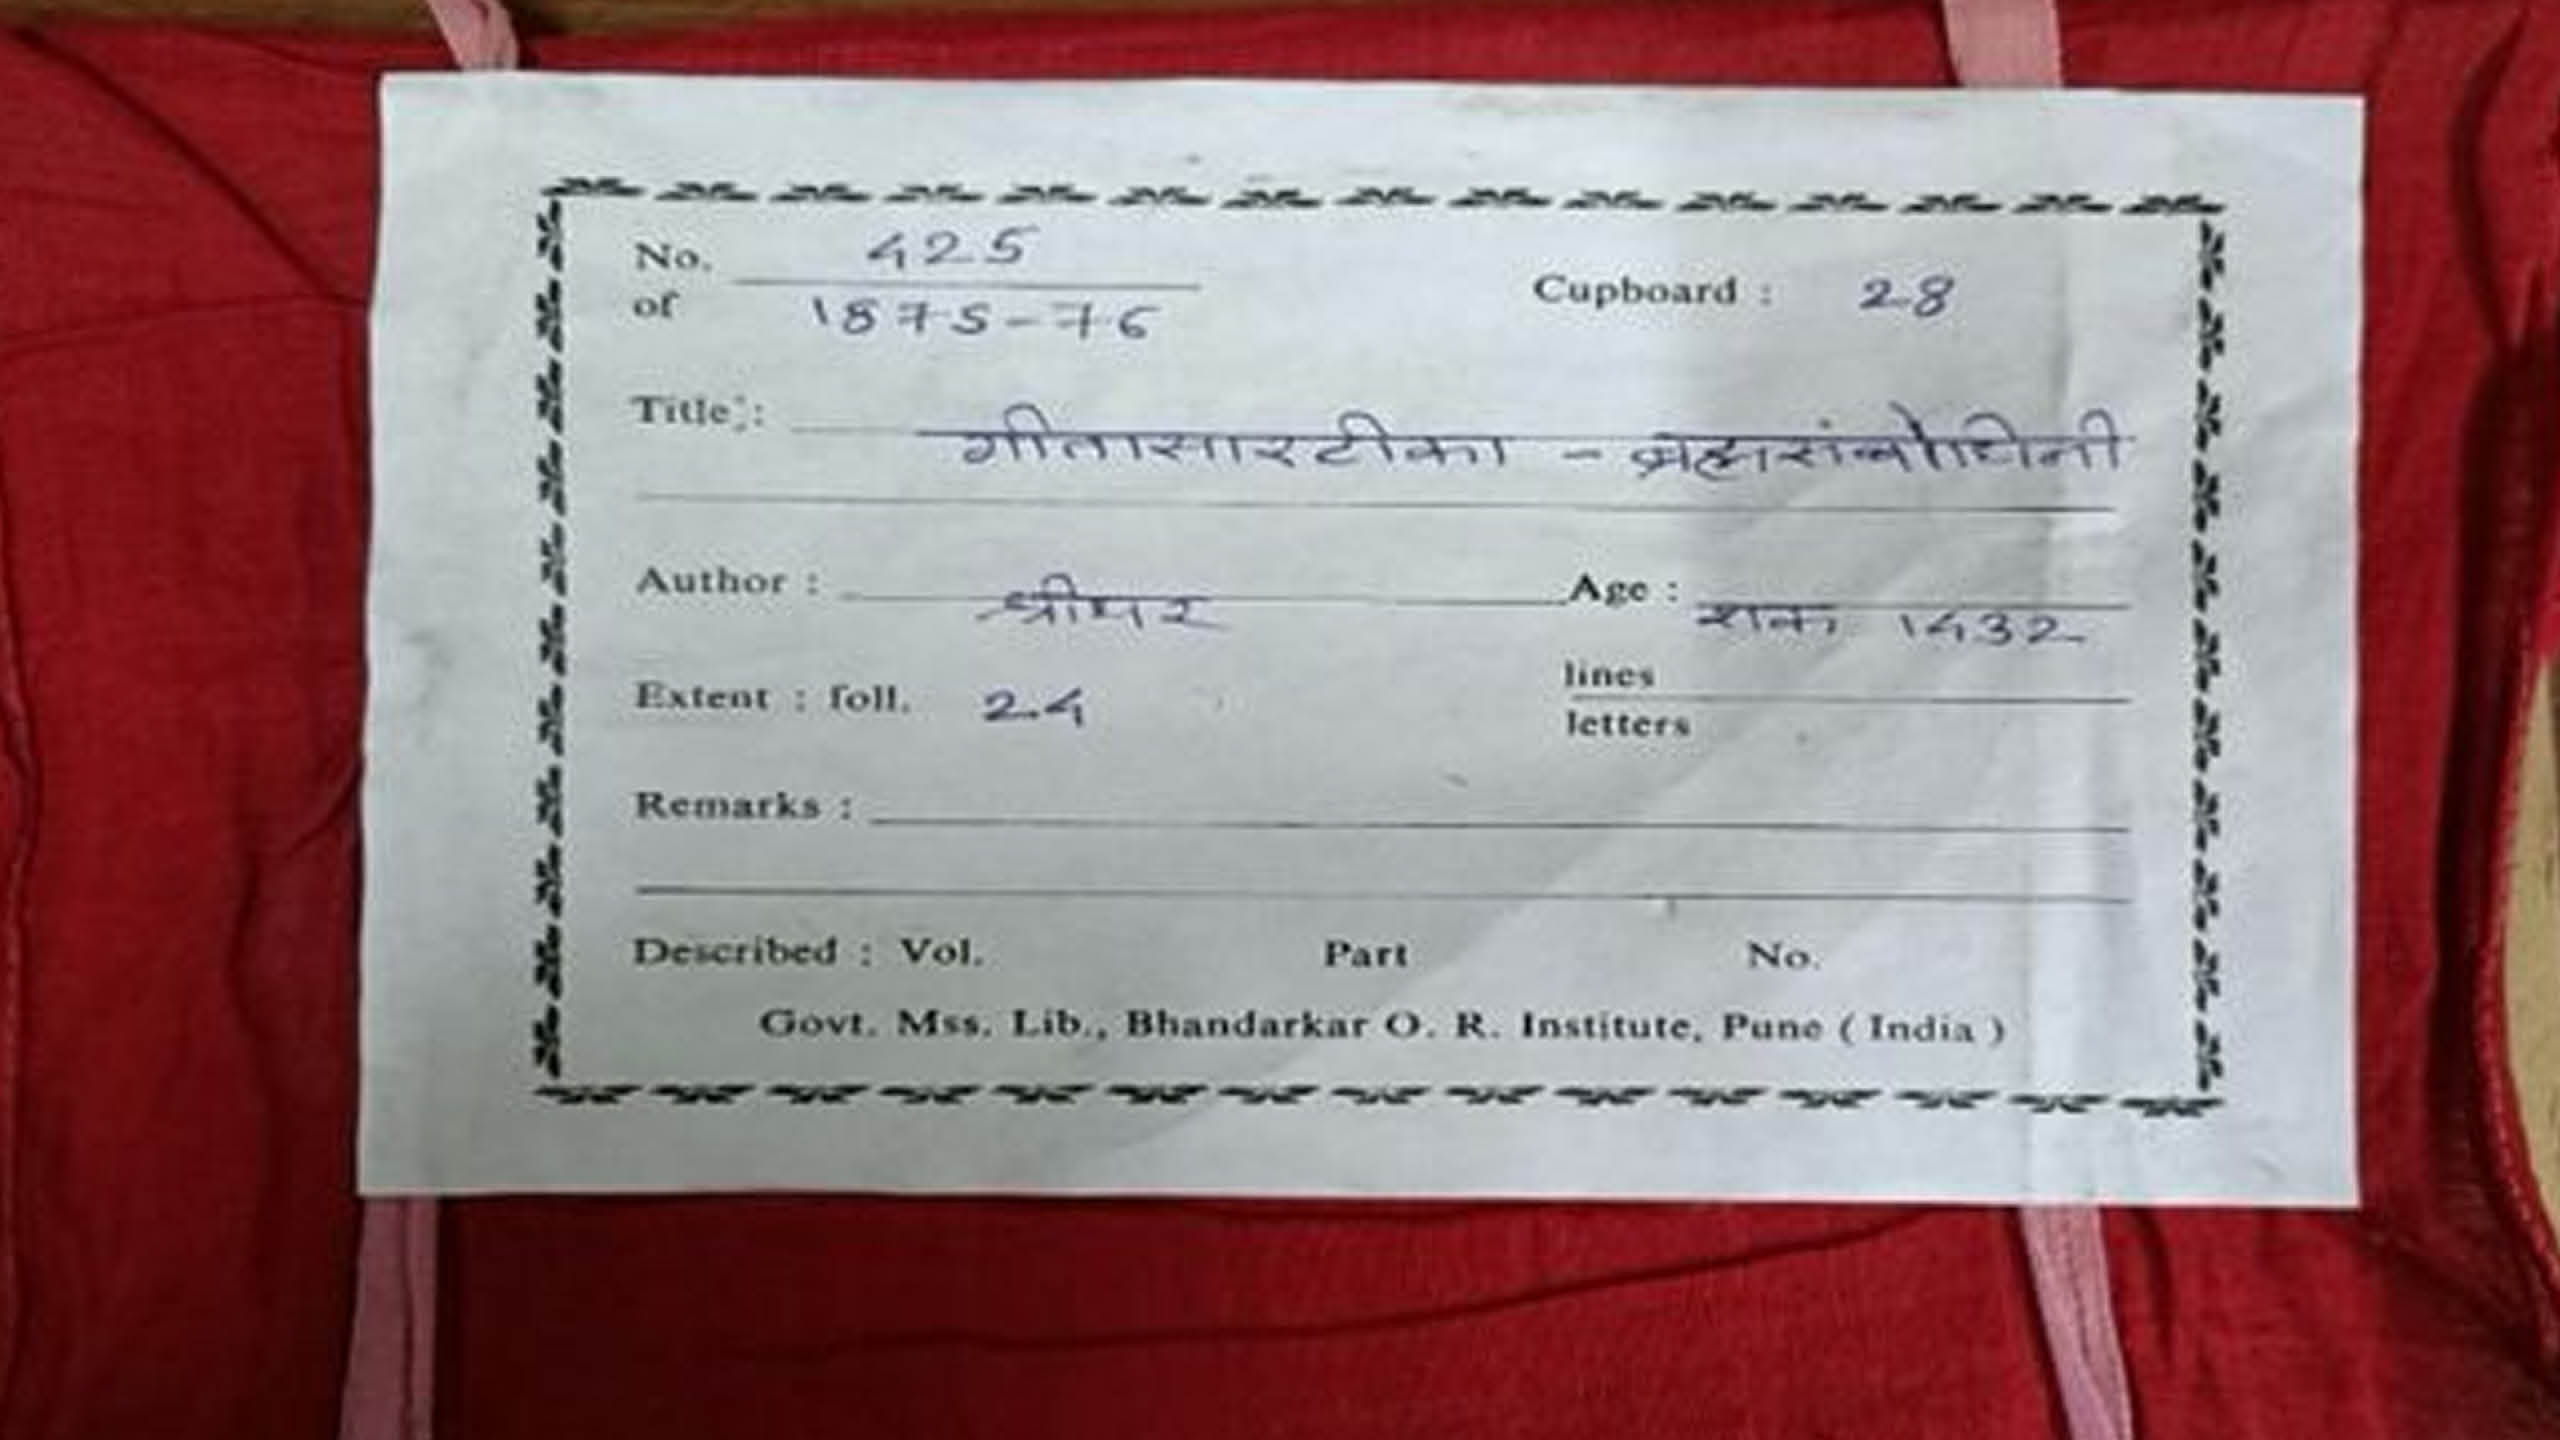 No. 425
of 1875-76
Cupboard : 28
Title : गीतासारटीका - ब्रह्मसंबोधिनी
Author : श्रीधर Age : शक 1432
Extent : foll. 24 lines
letters
Remarks :
Described : Vol. Part No.
Govt. Mss. Lib., Bhandarkar O. R. Institute, Pune ( India )